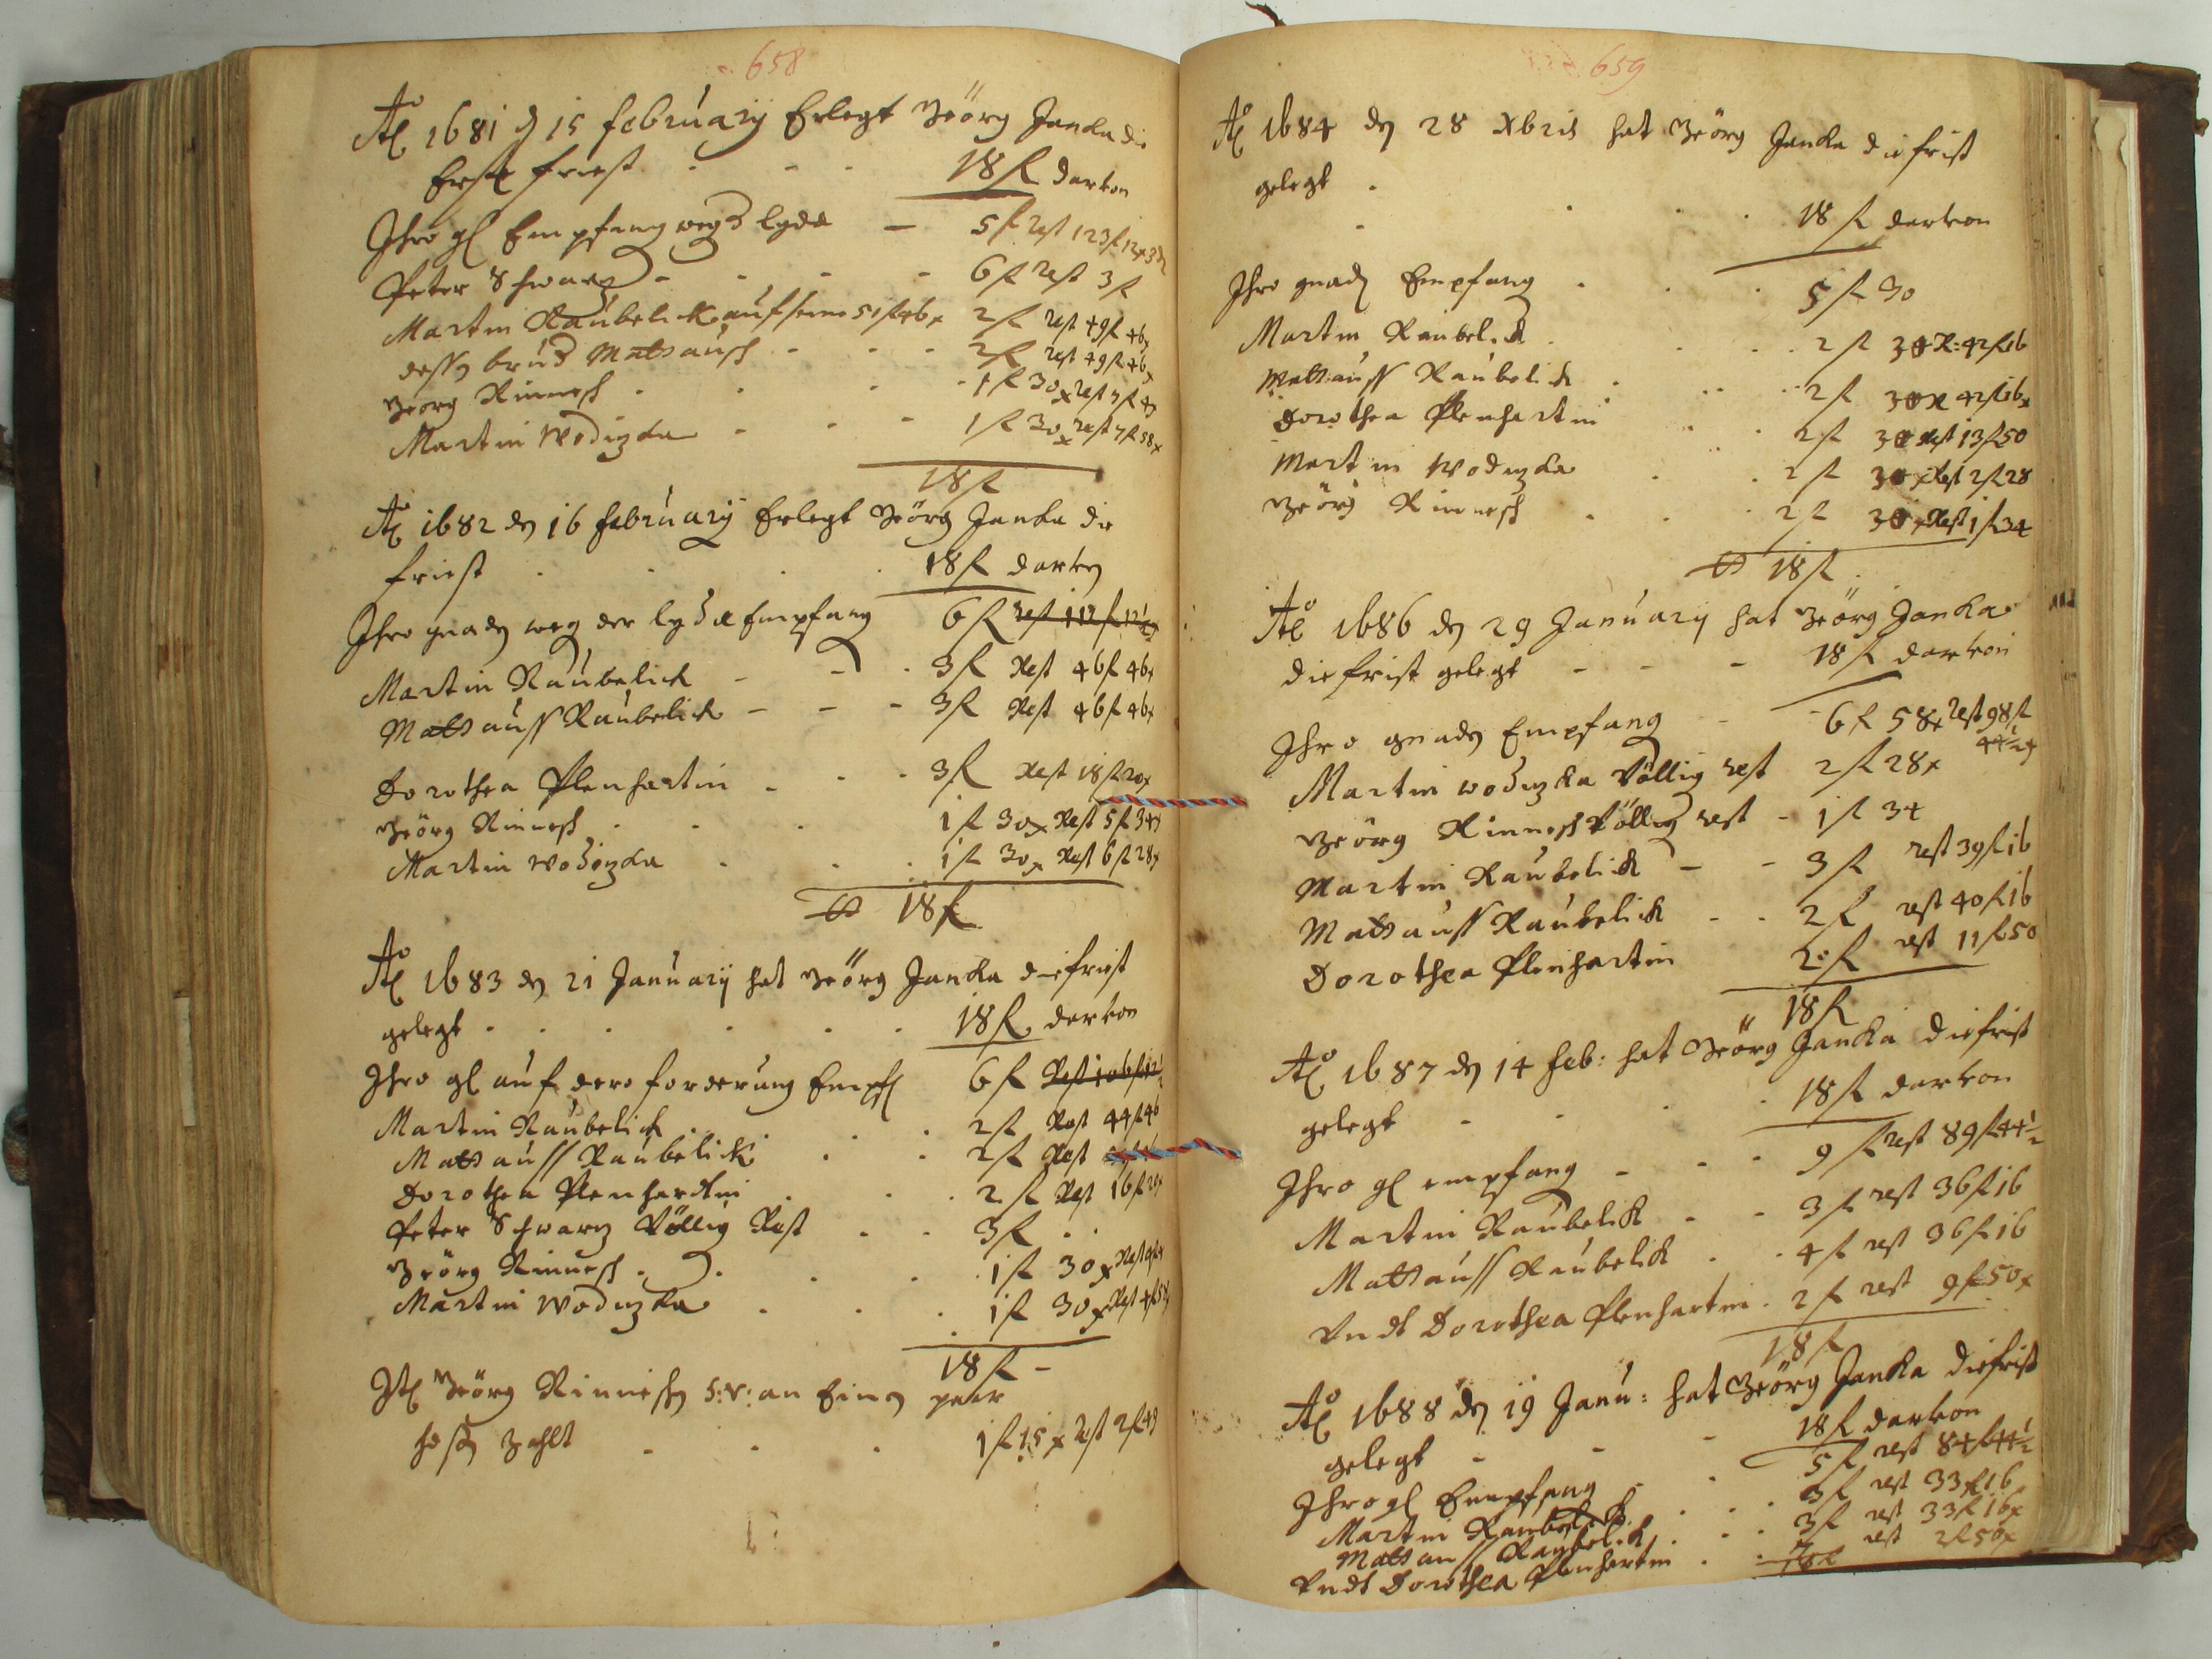 658
Ao 1681 d 15 februarÿ Erlegt Jeörg Janka die
Erste friest . . . 18 fl darvon
Ihro gl Empfang wegen — 5 fl rest 123 fl 12
Peter Schwarz - - - 6 fl rest 3 fl
Martin Raubelick auf seine 51 fl 46 x 2 fl rest 49 fl 46 x
dessen bruder Mathausch . . . 2 fl rest 49 fl 46 x
Jeorg Rinnesch . . . 1 fl 30 x rest 7 fl
Martin Wodizka - - - 1 fl 30 x rest 7 fl 58 x
18 fl
Ao 1682 den 16 februarÿ Erlegt Jeörg Janka die
friest . . . 18 fl darvon
Ihro gnaden weg der Empfang 6 fl rest
Martin Raubelick - - . 3 fl Rest 46 fl 46 x
Mathauss Raubelick - - - 3 fl Rest 46 fl 46 x
Dorothea Plenhartin - . . 3 fl Rest 18 fl 20 x
Jeörg Rinnesch . . . 1 fl 30 x Rest 5 fl 34
Martin Wodizka . . . 1 fl 30 x Rest 6 fl 28 x
18 fl
Ao 1683 den 21 Januarÿ hat Jeörg Janka die friest
gelegt . . . . . . 18 fl darvon
Ihro gl auf dero forderung Empf 6 fl Rest
Martin Raubelick . . . 2 fl Rest 44 fl 46
Mathauss Raubelick . . . 2 fl Rest
Dorothea Plenhardtin . . . 2 fl Rest 16 fl 20 x
Peter Schwarz Völlig Rest . . 3 fl .
Jeörg Rinnesch . . . 1 fl 30 x Rest
Martin Wodizka . . . 1 fl 30 x Rest
18 fl -
Jeörg Rinneschen S: v: an Einen paar
hosen zahlt - - . 1 fl 15 x Rest 2 fl 49
659
Ao 1684 den 28 Xbris hat Jeörg Janka die frist
gelegt . . . . 18 fl darvon
Ihro gnaden Empfang . . . 5 fl 30
Martin Raubelick . . . 2 fl 30 R: 42 fl 16
Mathauss Raubelick . . . 2 fl 30 R 42 fl 16 x
Dorothea Plenhartin . . 2 fl 30 Rest 13 fl 50
Martin Wodizka . . 2 fl 30 x Rest 2 fl 28
Jeörg Rinnesch . . . 2 fl 30 x Rest 1 fl 34
18 fl
Ao 1686 den 29 Januarÿ hat Jeörg Janka
die frist gelegt - - - 18 fl darvon
Ihro gnaden Empfang - - 6 fl 58 x rest 98 fl
44 1/2 x
Martin Wodizka Völlig rest 2 fl 28 x
Jeörg Rinnesch Völlig rest - 1 fl 34
Martin Raubelick - - 3 fl rest 39 fl 16
Mathauss Raubelick - . 2 fl rest 40 fl 16
Dorothea Plenhartin 2 fl rest 11 fl 50
18 fl
Ao 1687 den 14 feb: hat Jeörg Janka die frist
gelegt - - . . 18 fl darvon
Ihro gl empfang - - . 9 fl rest 89 fl 44 1/2
Martin Raubelick - - 3 fl rest 36 fl 16
Mathauss Raubelick . . 4 fl rest 36 fl 16
Vndt Dorothea Plenhartin . 2 fl rest 9 fl 50 x
18 fl
Ao 1688 den 19 Janu: hat Jeörg Janka die frist
gelegt - - - 18 fl darvon
Ihro gl Empfang . . 5 fl rest 84 fl 44 1/2
Martin Raubelick . . . 3 fl rest 33 fl 16
Mathauss Raubelick . . . 3 fl rest 33 fl 16 x
Vndt Dorothea Plenhartin . . 7 rest 2 fl 50 x